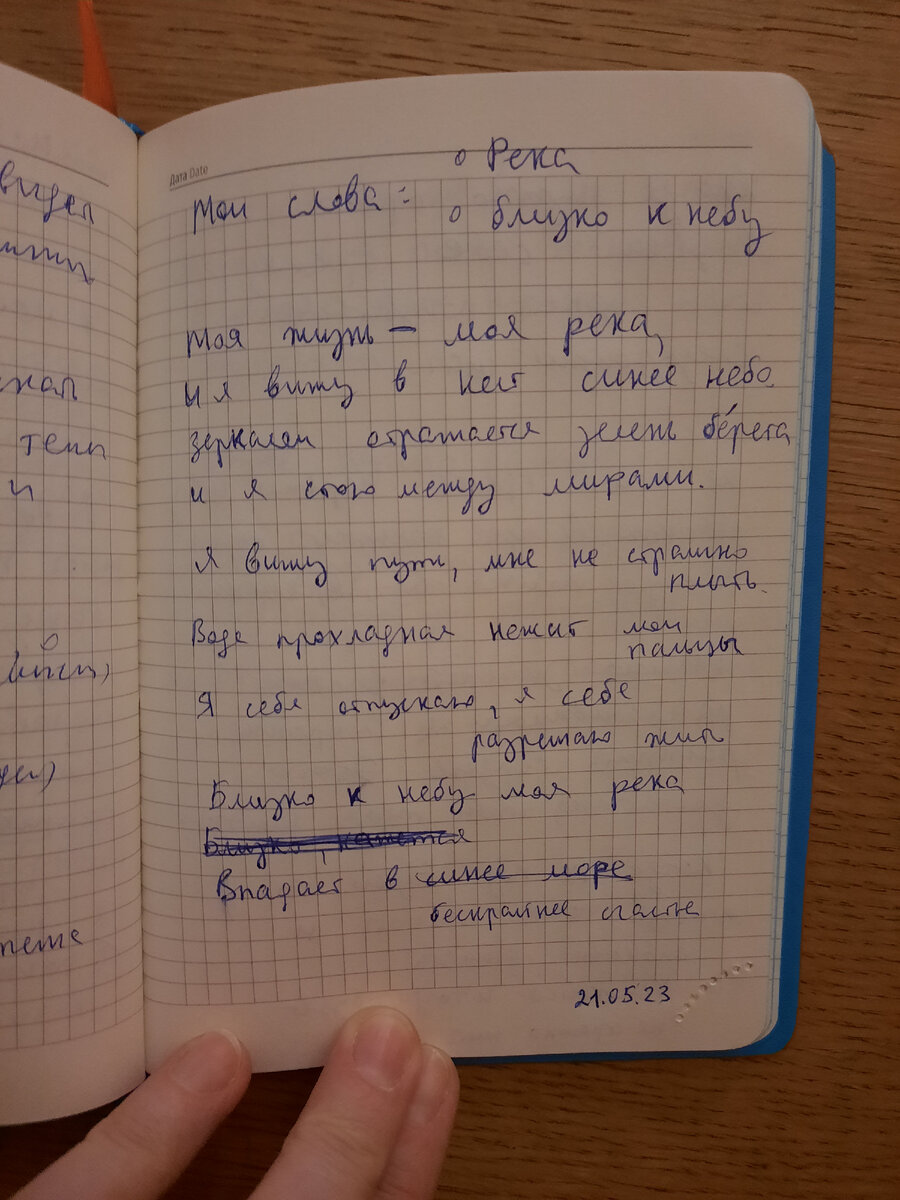 видел
Дата Date
Мои слова:
o Река
o близко к небу
Моя жизнь – моя река,
и я вижу в ней синее небо.
зеркалом отражается зелень бе́рега
и я стою между мирами.
Я вижу пути, мне не страшно
плыть.
Вода прохладная нежит мои
пальцы
Я себя отпускаю, я себе
разрешаю жить
Близко к небу моя река
Близко, кажется
Впадает в синее море
бескрайнее счастье
21.05.23
тени
и